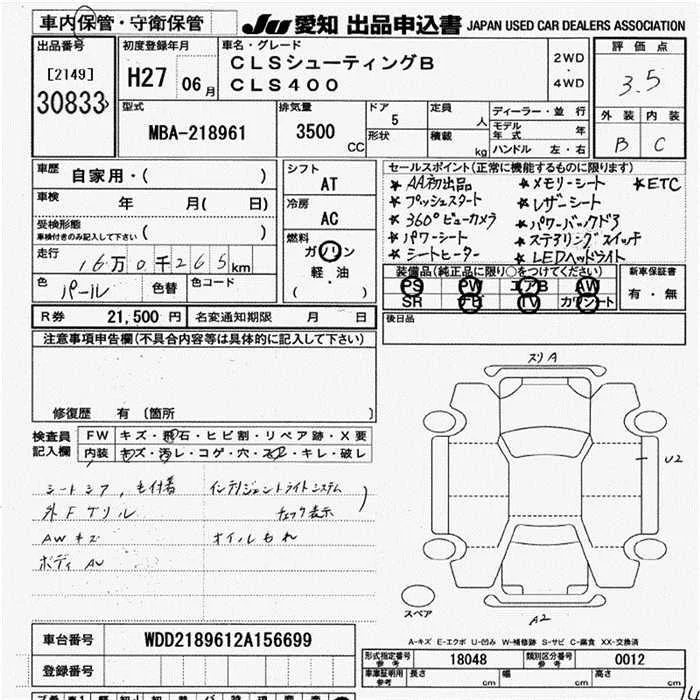 車内保管・守衛保管 JU 愛知 出品申込書 JAPAN USED CAR DEALERS ASSOCIATION
出品番号 初度登録年月 車名・グレード 2WD・4WD 評価点
[2149] H27 06月 CLSシューティングB 3.5
30833 CLS400
外装 内装
B C
型式 MBA-218961 排気量 3500 CC ドア 5 定員 人 ディーラー・並行
形状 積載 kg モデル年式 年
ハンドル 左・右
車歴 自家用・( ) シフト AT
車検 年 月( 日) 冷房 AC
受検形態 車検付きのみ記入して下さい ( )
燃料 ガソリン 軽・油 ( )
走行 16万0千265km
色 パール 色替 色コード
R券 21,500 円 名変通知期限 月 日
セールスポイント(正常に機能するものに限ります)
★AA初出品 ★メモリーシート ★ETC
★プッシュスタート ★レザーシート
★360°ビューカメラ ★パワーバックドア
★パワーシート ★ステアリングスイッチ
★シートヒーター ★LEDヘッドライト
装備品(純正品に限り○をつけてください) 新車保証書
PS PW エアB AW 有・無
SR TV カワシート
後日品
注意事項申告欄(不具合内容等は具体的に記入して下さい)
修復歴 有 〔箇所 〕
検査員記入欄 FW キズ・飛石・ヒビ割・リペア跡・X要
内装 キズ・汚レ・コゲ・穴・スレ・キレ・破レ
シートシワ, 毛付着 インテリジェントライトシステム
外Fグリル チェック表示
AWキズ オイルもれ
ボディAU
スリA
U2
A2
スペア
A-キズ E-エクボ U-凹み W-補修跡 S-サビ C-腐食 XX-交換済
車台番号 WDD2189612A156699
登録番号
形式指定番号 参考 18048 類別区分番号 参考 0012
車庫証明用 参考 長さ cm 幅 cm 高さ cm